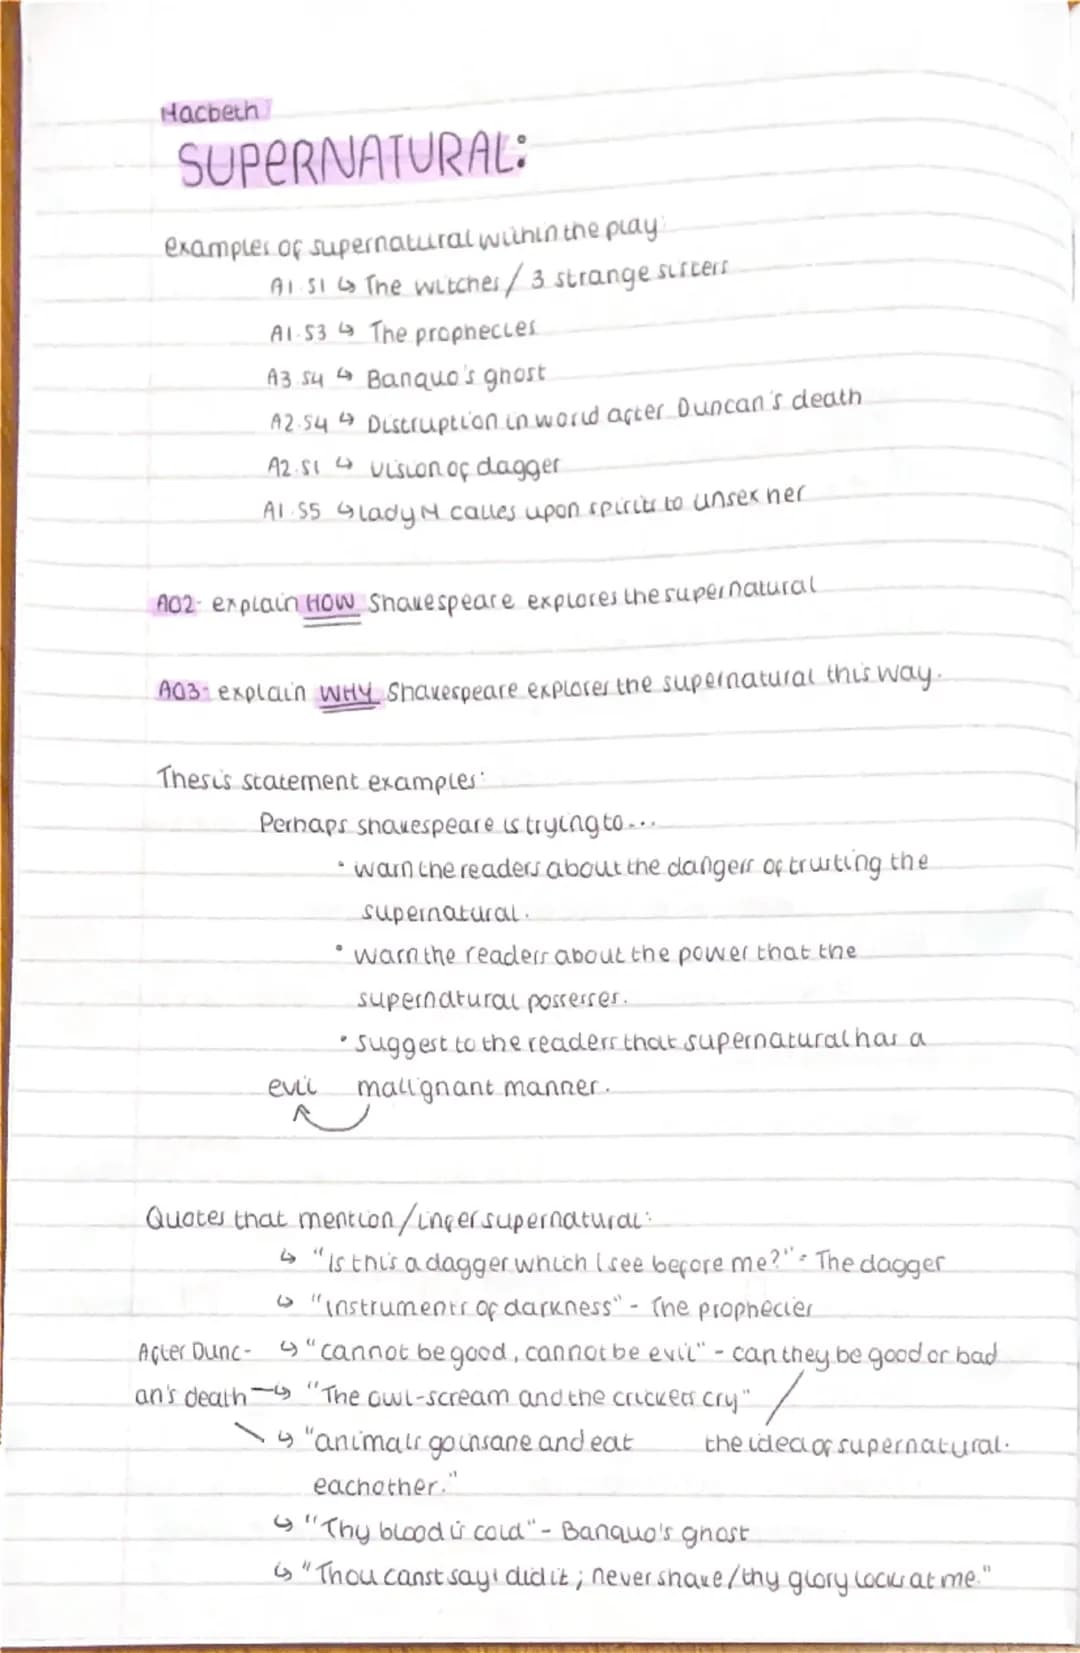 Macbeth
SUPERNATURAL:
examples of supernatural within the play:
A1.S1 ↳ The witches / 3 strange sisters
A1.S3 ↳ The prophecies
A3 S4 ↳ Banquo's ghost
A2.S4 ↳ Disctruption in world after Duncan's death
A2.S1 ↳ vision of dagger
A1.S5 ↳ lady M calles upon spirits to unsex her
AO2- explain HOW Shakespeare explores the supernatural
AO3- explain WHY Shakespeare explores the supernatural this way.
Thesis statement examples:
Perhaps shakespeare is trying to...
• warn the readers about the dangers of trusting the
supernatural.
• warn the readers about the power that the
supernatural possesses.
• suggest to the readers that supernatural has a
evil malignant manner.
Quotes that mention/infer supernatural:
↳ "Is this a dagger which I see before me?" - The dagger
↳ "instruments of darkness" - The prophecies
After Dunc- ↳ "cannot be good, cannot be evil" - can they be good or bad
an's death ↳ "The owl-scream and the crickets cry"
↳ "animals go insane and eat the idea of supernatural.
eachother."
↳ "Thy blood is cold" - Banquo's ghost
↳ "Thou canst say i did it; never shake/thy glory locks at me."